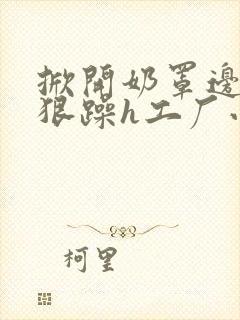 掀開奶罩邊
狠躁h工厂
柯里